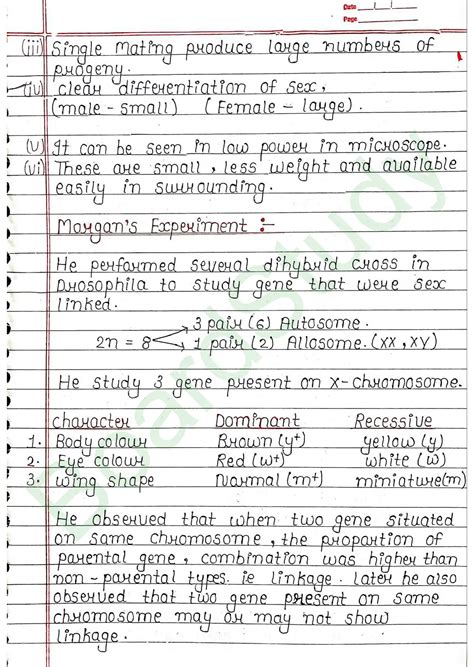 Date
Page
(iii) Single Mating produce large numbers of
progeny.
(iv) clear differentiation of sex,
(male - small) (Female - large).
(v) It can be seen in low power in microscope.
(vi) These are small, less weight and available
easily in surrounding.
Morgan's Experiment :-
He performed several dihybrid cross in
Drosophila to study gene that were sex
linked.
3 pair (6) Autosome.
2n = 8
1 pair (2) Allosome. (xx, xy)
He study 3 gene present on x-chromosome.
Character Dominant Recessive
1. Body colour Brown (y+) yellow (y)
2. Eye colour Red (w+) white (w)
3. wing shape Normal (m+) miniature(m)
He observed that when two gene situated
on same chromosome, the proportion of
parental gene, combination was higher than
non-parental types. ie linkage. later he also
observed that two gene present on same
chromosome may or may not show
linkage.
BoardStudy